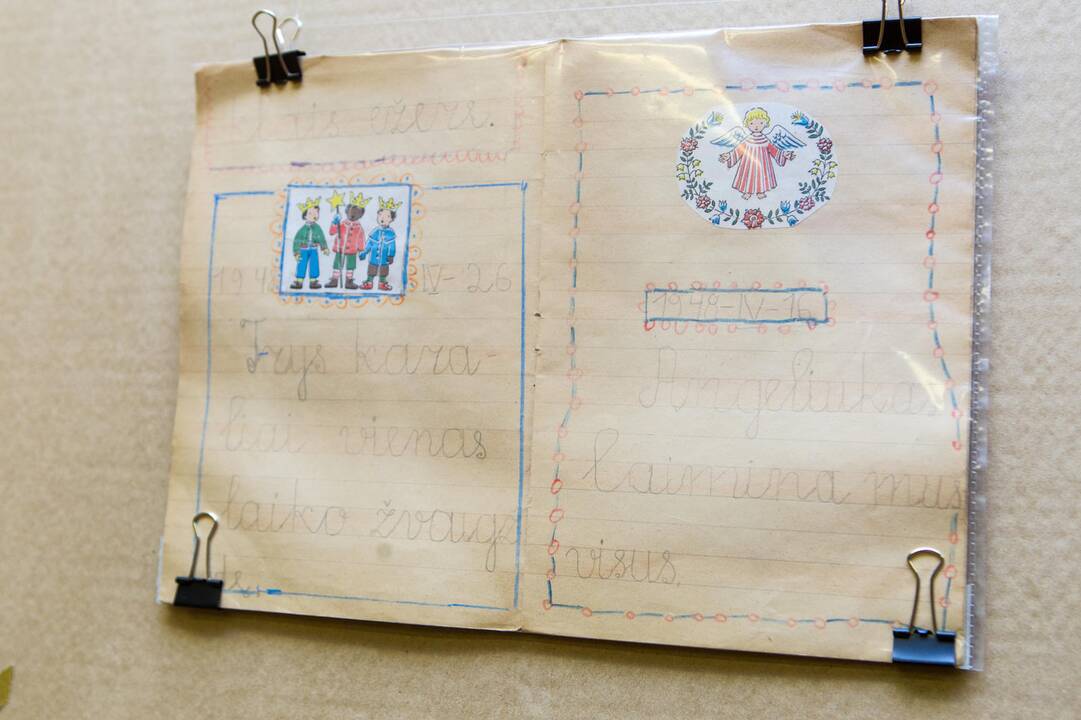 ežere.
1948 IV-26
Trys kara-
liai vienas
laiko žvaigž
dę.
1948-IV-16
Angeliukas
laimina mus
visus.